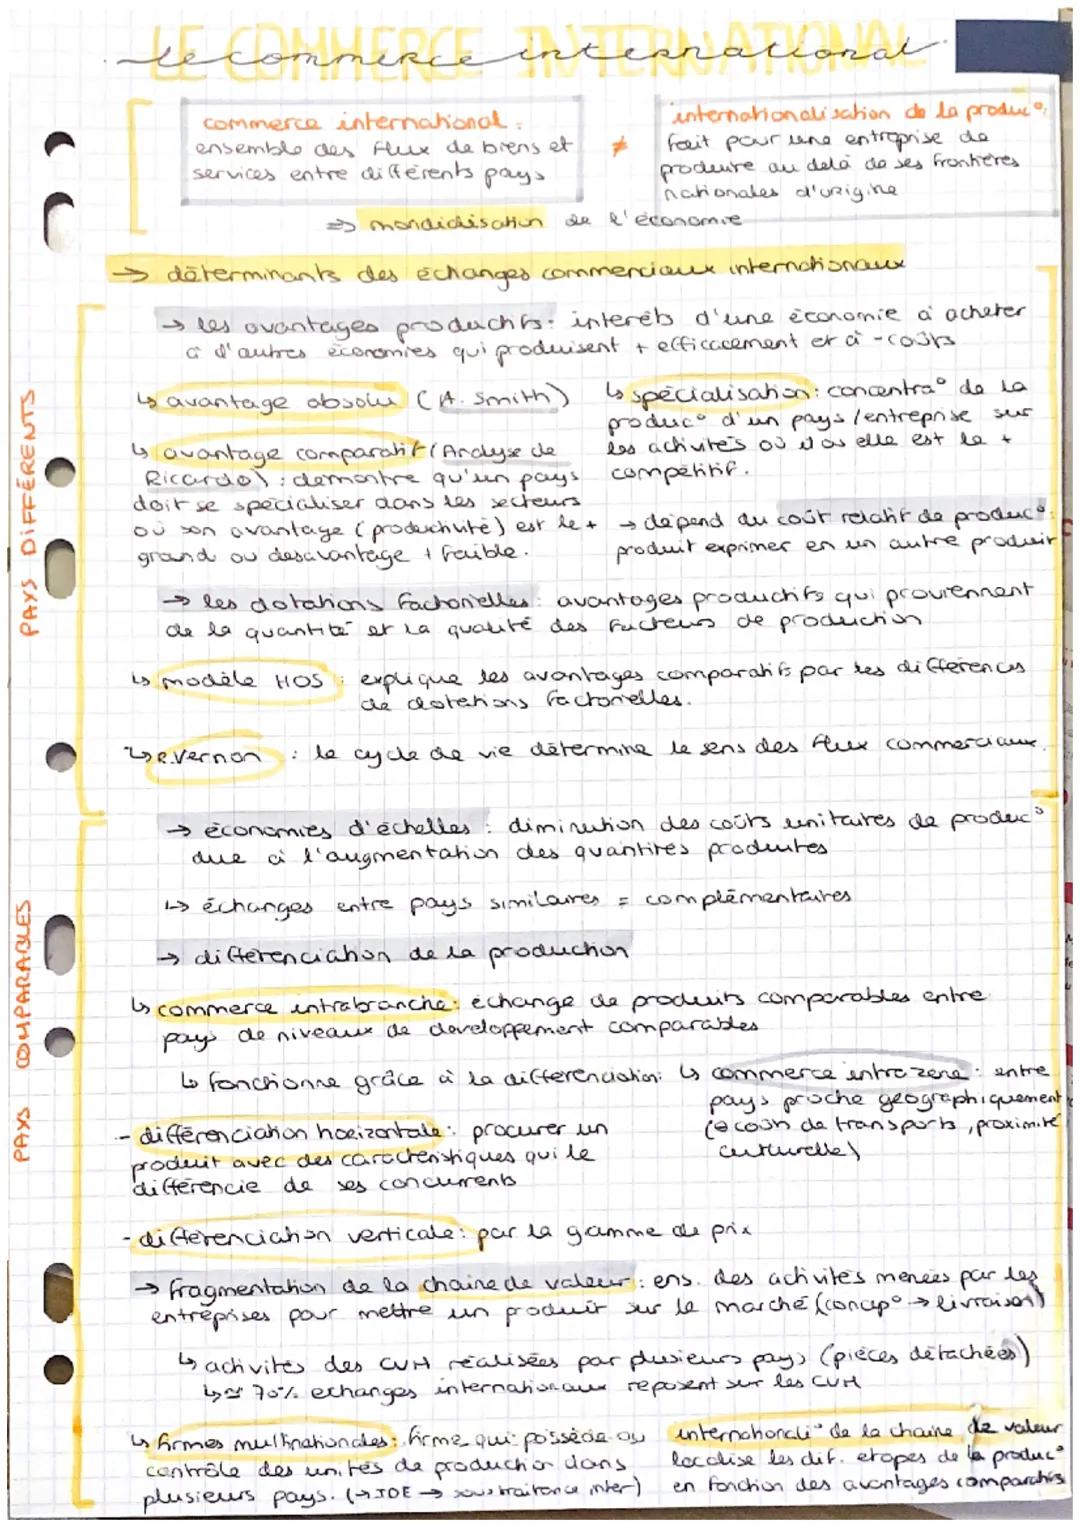 LE COMMERCE INTERNATIONAL
Le commerce international
commerce international :
ensemble des flux de biens et
services entre différents pays
≠
internationalisation de la produc°:
fait pour une entreprise de
produire au delà de ses frontières
nationales d'origine
=> mondialisation de l'économie
→ déterminants des échanges commerciaux internationaux
PAYS DIFFÉRENTS
→ les avantages productifs: interêts d'une économie à acheter
à d'autres économies qui produisent + efficacement et à - coûts
↳ avantage absolu (A. Smith)
↳ avantage comparatif (Analyse de
Ricardo) : démontre qu'un pays
doit se spécialiser dans les secteurs
où son avantage (productivité) est le +
grand ou désavantage + faible.
↳ spécialisation: concentra° de la
produc° d'un pays/entreprise sur
les activités où il ou elle est le +
compétitif.
→ dépend du coût relatif de produc°:
produit exprimer en un autre produit
→ les dotations factorielles: avantages productifs qui proviennent
de la quantité et la qualité des facteurs de production
↳ modèle HOS : explique les avantages comparatifs par les différences
de dotations factorielles.
↳ R.vernon : le cycle de vie détermine le sens des flux commerciaux.
PAYS COMPARABLES
→ économies d'échelles : diminution des coûts unitaires de produc°
due à l'augmentation des quantités produites
↳ échanges entre pays similaires = complémentaires
→ différenciation de la production
↳ commerce intrabranche: échange de produits comparables entre
pays de niveaux de developpement comparables
↳ fonctionne grâce à la différenciation:
- différenciation horizontale: procurer un
produit avec des caractéristiques qui le
différencie de ses concurrents
↳ commerce intra zone : entre
pays proche géographiquement
(⊖ coûts de transports, proximité
culturelle)
- différenciation verticale: par la gamme de prix
→ fragmentation de la chaine de valeur: ens. des activités menées par les
entreprises pour mettre un produit sur le marché (concep° → livraison)
↳ activités des CVM réalisées par plusieurs pays (pièces détachées)
↳ ≃ 70% echanges internationaux reposent sur les CVM
↳ firmes multinationales: firme qui possède ou
contrôle des unités de production dans
plusieurs pays. (→ IDE → sous traitance inter)
internationali° de la chaine de valeur
localise les dif. etapes de la produc°
en fonction des avantages comparatifs